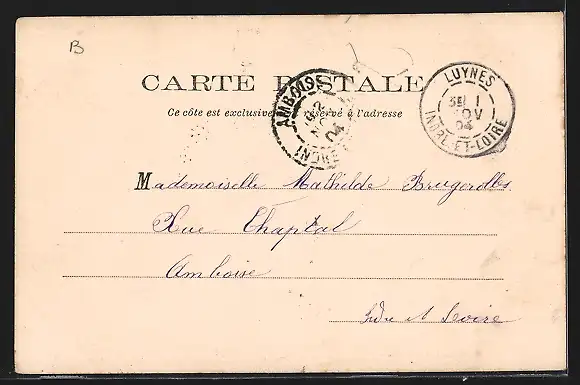 B
CARTE POSTALE
Ce côte est exclusivement réservé à l'adresse
AMBOISE
2
04
INDRE
LUYNES
1
NOV
04
INDRE-ET-LOIRE
Mademoiselle Mathilde Brugerolles
Rue Chaptal
Amboise
Indre et Loire